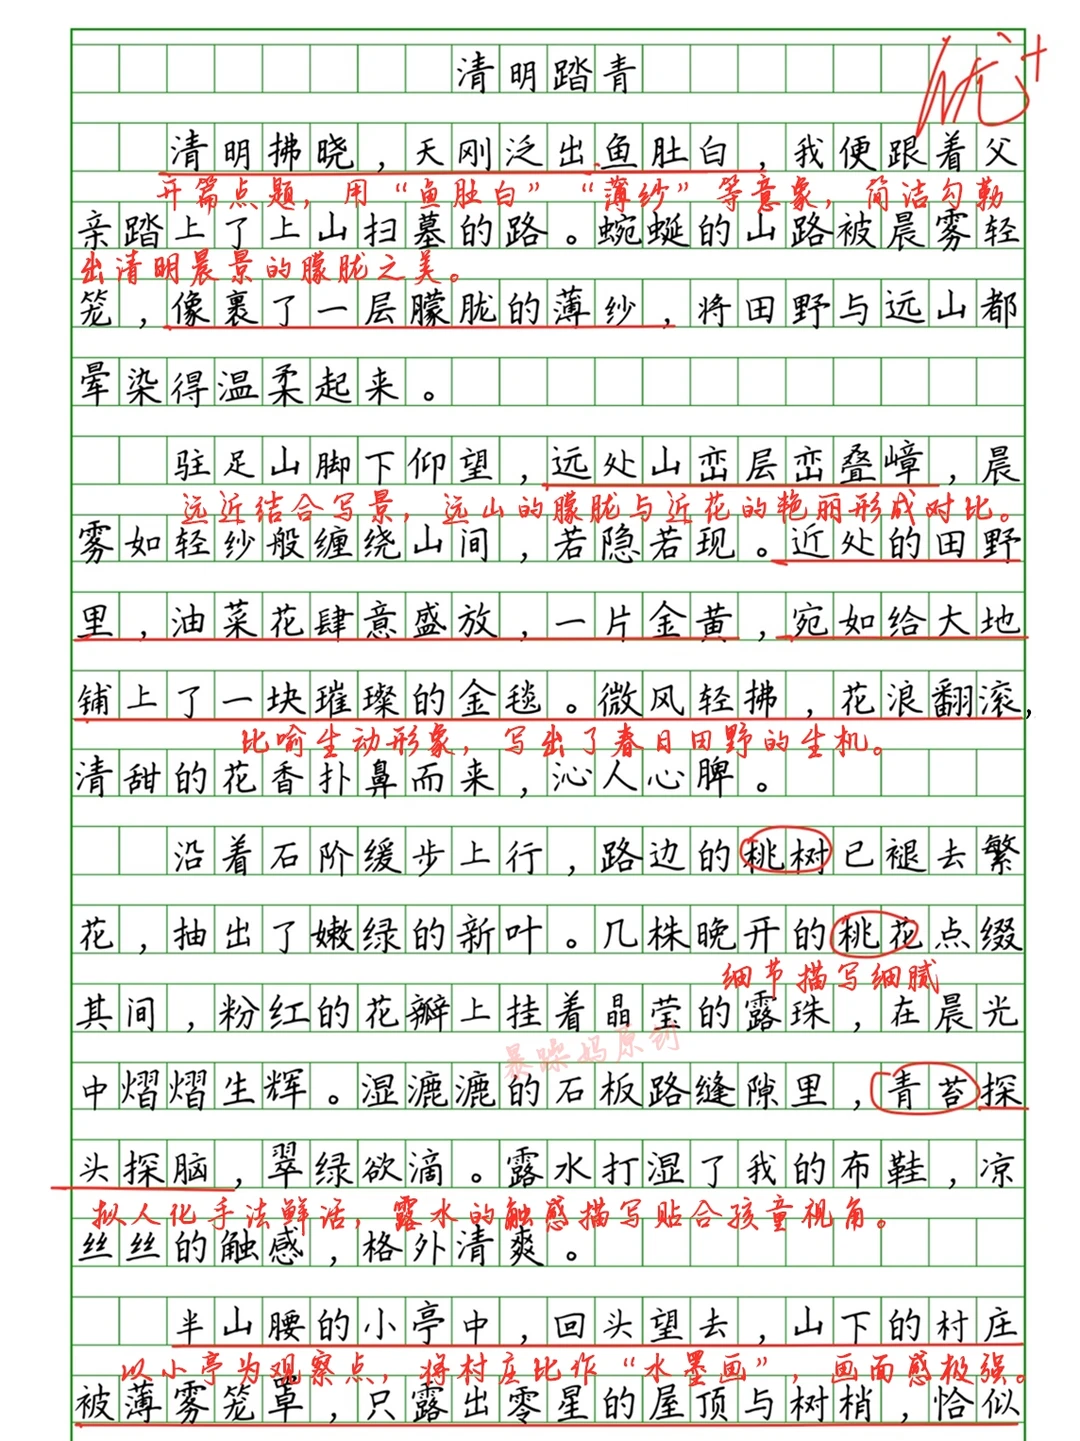 清明踏青
优+
清明拂晓，天刚泛出鱼肚白，我便跟着父
开篇点题，用“鱼肚白”“薄纱”等意象，简洁勾勒
亲踏上了上山扫墓的路。蜿蜒的山路被晨雾轻
出清明晨景的朦胧之美。
笼，像裹了一层朦胧的薄纱，将田野与远山都
晕染得温柔起来。
驻足山脚下仰望，远处山峦层峦叠嶂，晨
远近结合写景，远山的朦胧与近花的艳丽形成对比。
雾如轻纱般缠绕山间，若隐若现。近处的田野
里，油菜花肆意盛放，一片金黄，宛如给大地
铺上了一块璀璨的金毯。微风轻拂，花浪翻滚，
比喻生动形象，写出了春日田野的生机。
清甜的花香扑鼻而来，沁人心脾。
沿着石阶缓步上行，路边的桃树已褪去繁
花，抽出了嫩绿的新叶。几株晚开的桃花点缀
细节描写细腻
其间，粉红的花瓣上挂着晶莹的露珠，在晨光
暴躁妈原创
中熠熠生辉。湿漉漉的石板路缝隙里，青苔探
头探脑，翠绿欲滴。露水打湿了我的布鞋，凉
拟人化手法鲜活，露水的触感描写贴合孩童视角。
丝丝的触感，格外清爽。
半山腰的小亭中，回头望去，山下的村庄
以小亭为观察点，将村庄比作“水墨画”，画面感极强。
被薄雾笼罩，只露出零星的屋顶与树梢，恰似